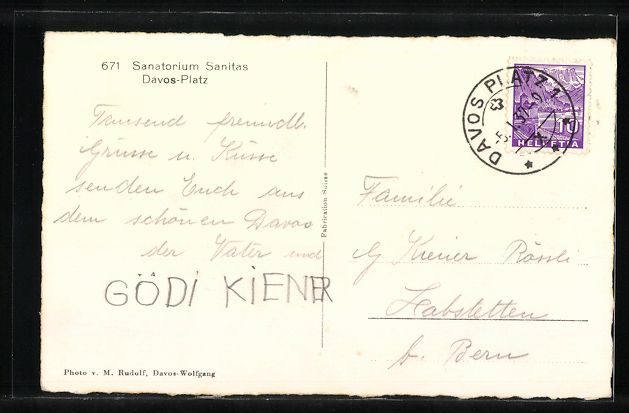 671 Sanatorium Sanitas
Davos-Platz
Tausend freundl.
Grüsse u. Küsse
senden Euch aus
dem schönen Davos
der Vater und
GÖDI KIENER
Photo v. M. Rudolf, Davos-Wolfgang
Fabrication Suisse
DAVOS PLATZ 1
10
HELVETIA
Familie
Kiener Rössli
Habstetten
b. Bern